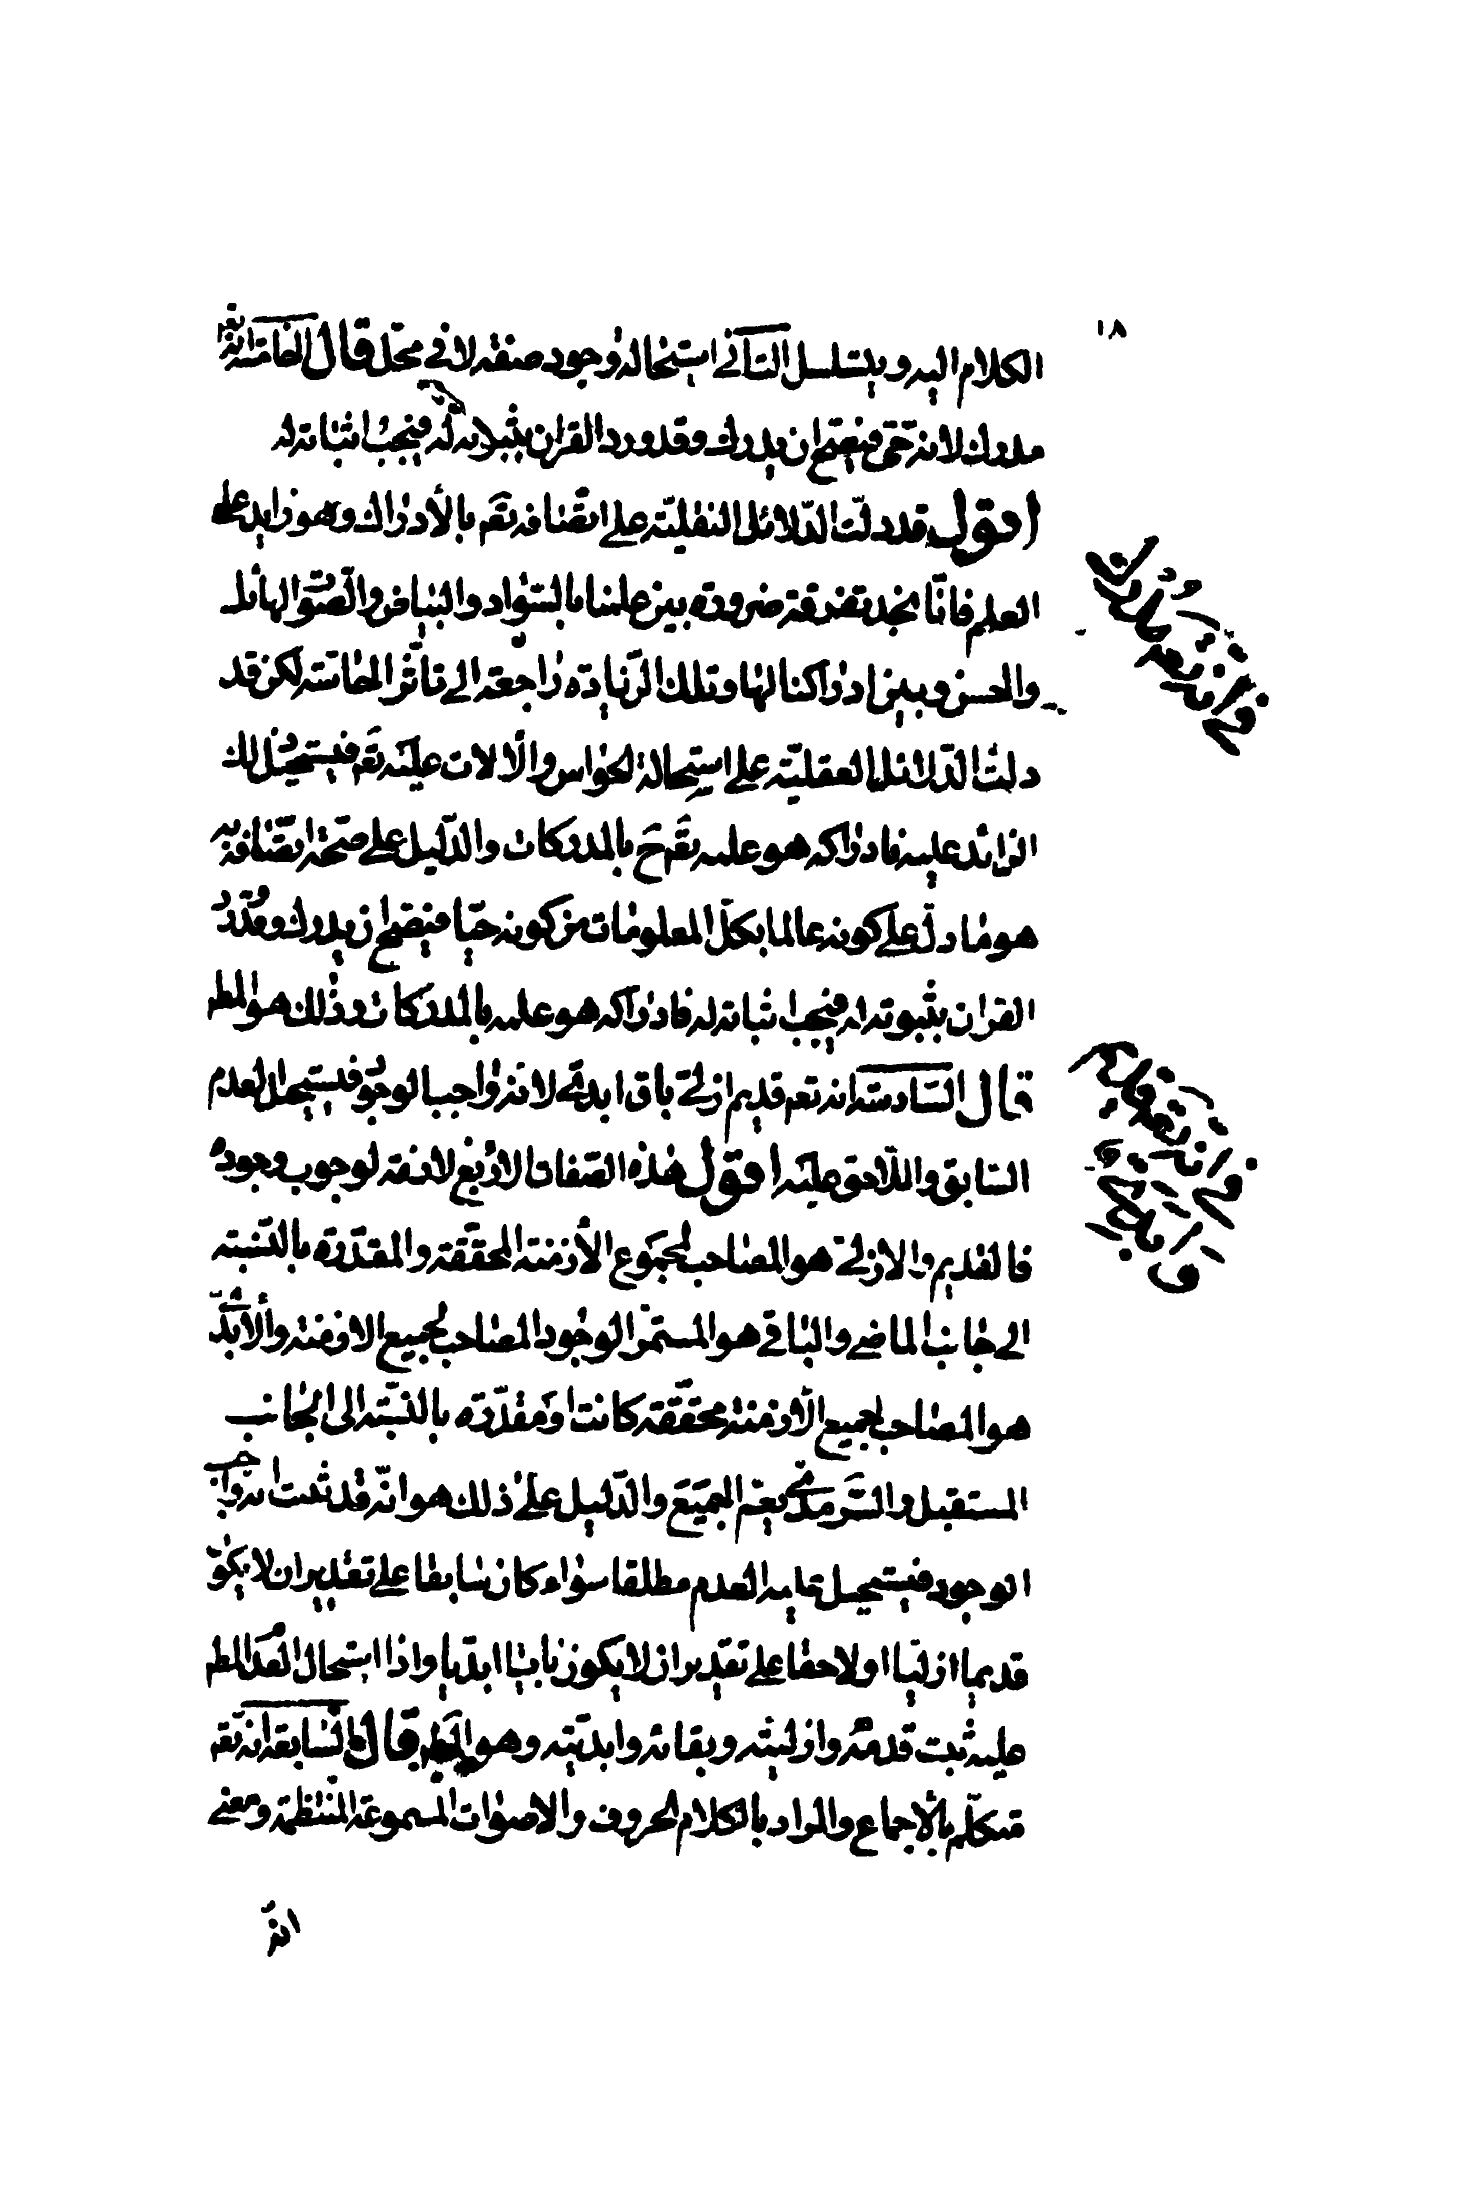 ١٨
الكلام اليه ويتسلسل الثاني استحالة وجود صفة لا في محل قال الخامسة انه تعم
مدرك لانه حي فيصح ان يدرك وقد ورد القران بثبوته له فيجب اثباته له
اقول قد دلت الدلائل النقلية على اتصافه تعم بالادراك وهو زايد على
العلم فانا نجد تفرقة ضرورة بين علمنا بالسواد والبياض والصوت الهائل
والحسن وبين ادراكنا لها وتلك الزيادة راجعة الى تاثر الحاسة لكن قد
دلت الدلائل العقلية على استحالة الحواس والالات عليه تعم فيستحيل ذلك
الزائد عليه فادراكه هو علمه تعم ح بالمدركات والدليل على صحة اتصافه به
هو ما دل على كونه عالما بكل المعلومات من كونه حيا فيصح ان يدرك وقد ورد
القران بثبوته له فيجب اثباته له فادراكه هو علمه بالمدركات وذلك هو المط
قال السادسة انه تعم قديم ازلي باق ابدي لانه واجب الوجود فيستحيل العدم
السابق واللاحق عليه اقول هذه الصفات الاربع لازمة لوجوب وجوده
فالقديم والازلي هو المصاحب لمجموع الازمنة المحققة والمقدرة بالنسبة
الى جانب الماضي والباقي هو المستمر الوجود المصاحب لجميع الازمنة والابدي
هو المصاحب لجميع الازمنة محققة كانت او مقدرة بالنسبة الى الجانب
المستقبل والسرمدي يعم الجميع والدليل على ذلك هو انه قد ثبت انه واجب
الوجود فيستحيل عليه العدم مطلقا سواء كان سابقا على تقدير ان لا يكون
قديما ازليا او لاحقا على تقدير ان لا يكون باقيا ابديا واذا استحال العدم المط
عليه ثبت قدمه وازليته وبقائه وابديته وهو المط قال السابعة انه تعم
متكلم بالاجماع والمراد بالكلام الحروف والاصوات المسموعة المنتظمة ومعنى
في انه تعم مدرك
في انه تعم قديم
انه